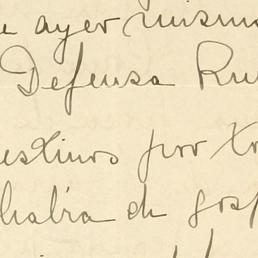 e ayer mismo
Defensa Ru
estinos por
habia de gos